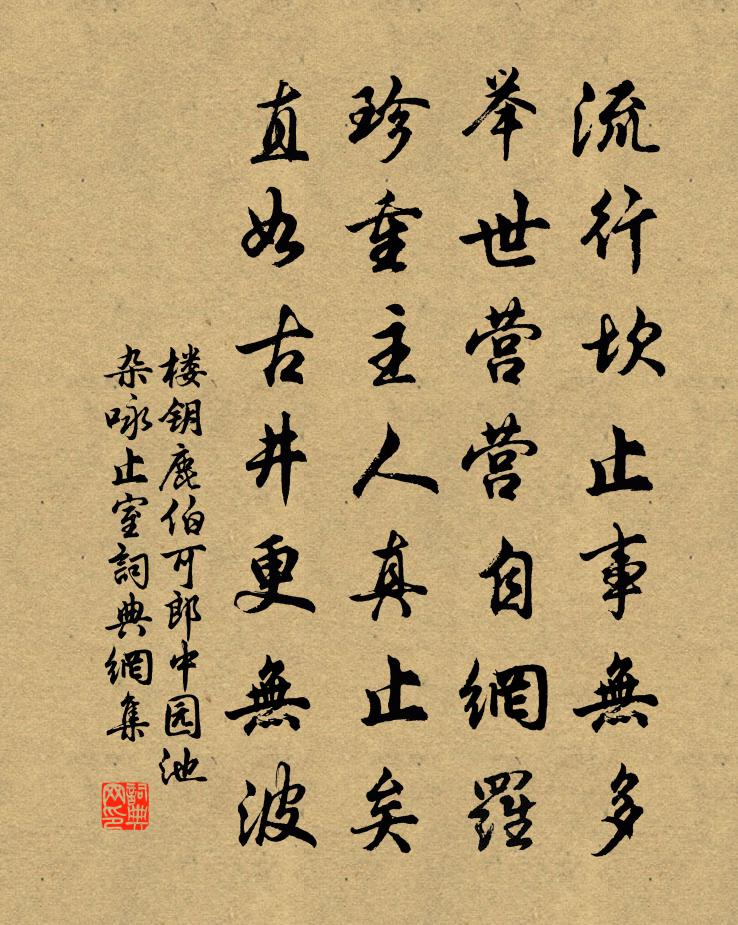 流行坎止事無多
举世营营自網羅
珍重主人真止矣
直如古井更無波
楼钥鹿伯可郎中园池
杂咏止室詞典網集
詞典
网印